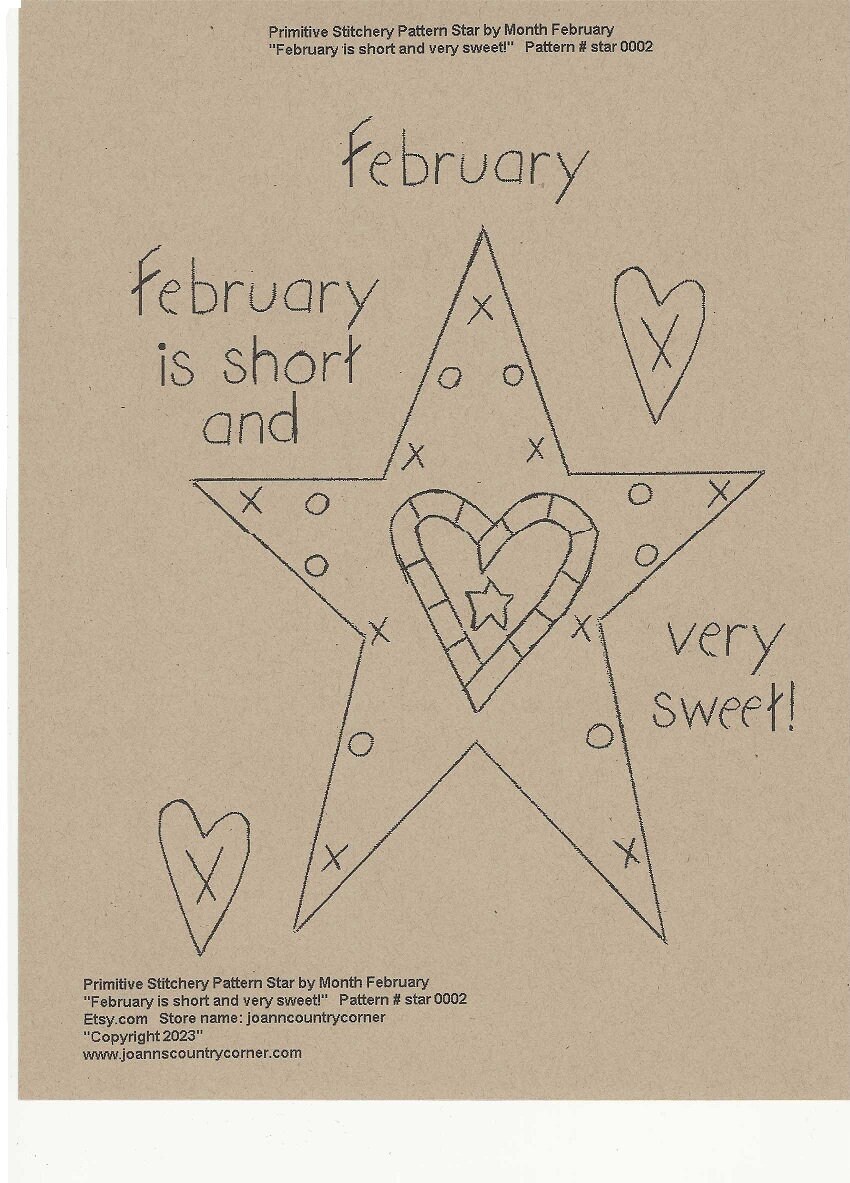 Primitive Stitchery Pattern Star by Month February
"February is short and very sweet!" Pattern # star 0002
February
February
is short
and
very
sweet!
Primitive Stitchery Pattern Star by Month February
"February is short and very sweet!" Pattern # star 0002
Etsy.com Store name: joanncountrycorner
"Copyright 2023"
www.joannscountrycorner.com